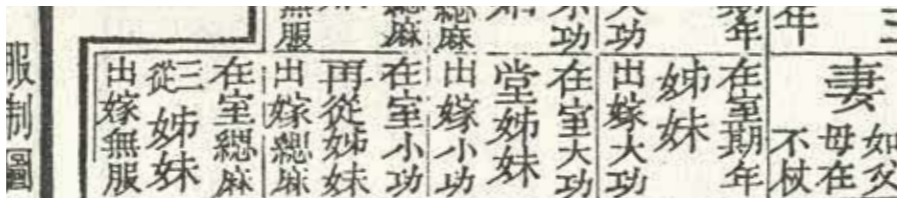 年
年
大功
小功
緦麻
緦麻
無服
妻
如父
母在
不杖
在室期年
姊妹
出嫁大功
在室大功
堂姊妹
出嫁小功
在室小功
再從姊妹
出嫁緦麻
在室緦麻
三從姊妹
出嫁無服
服制圖